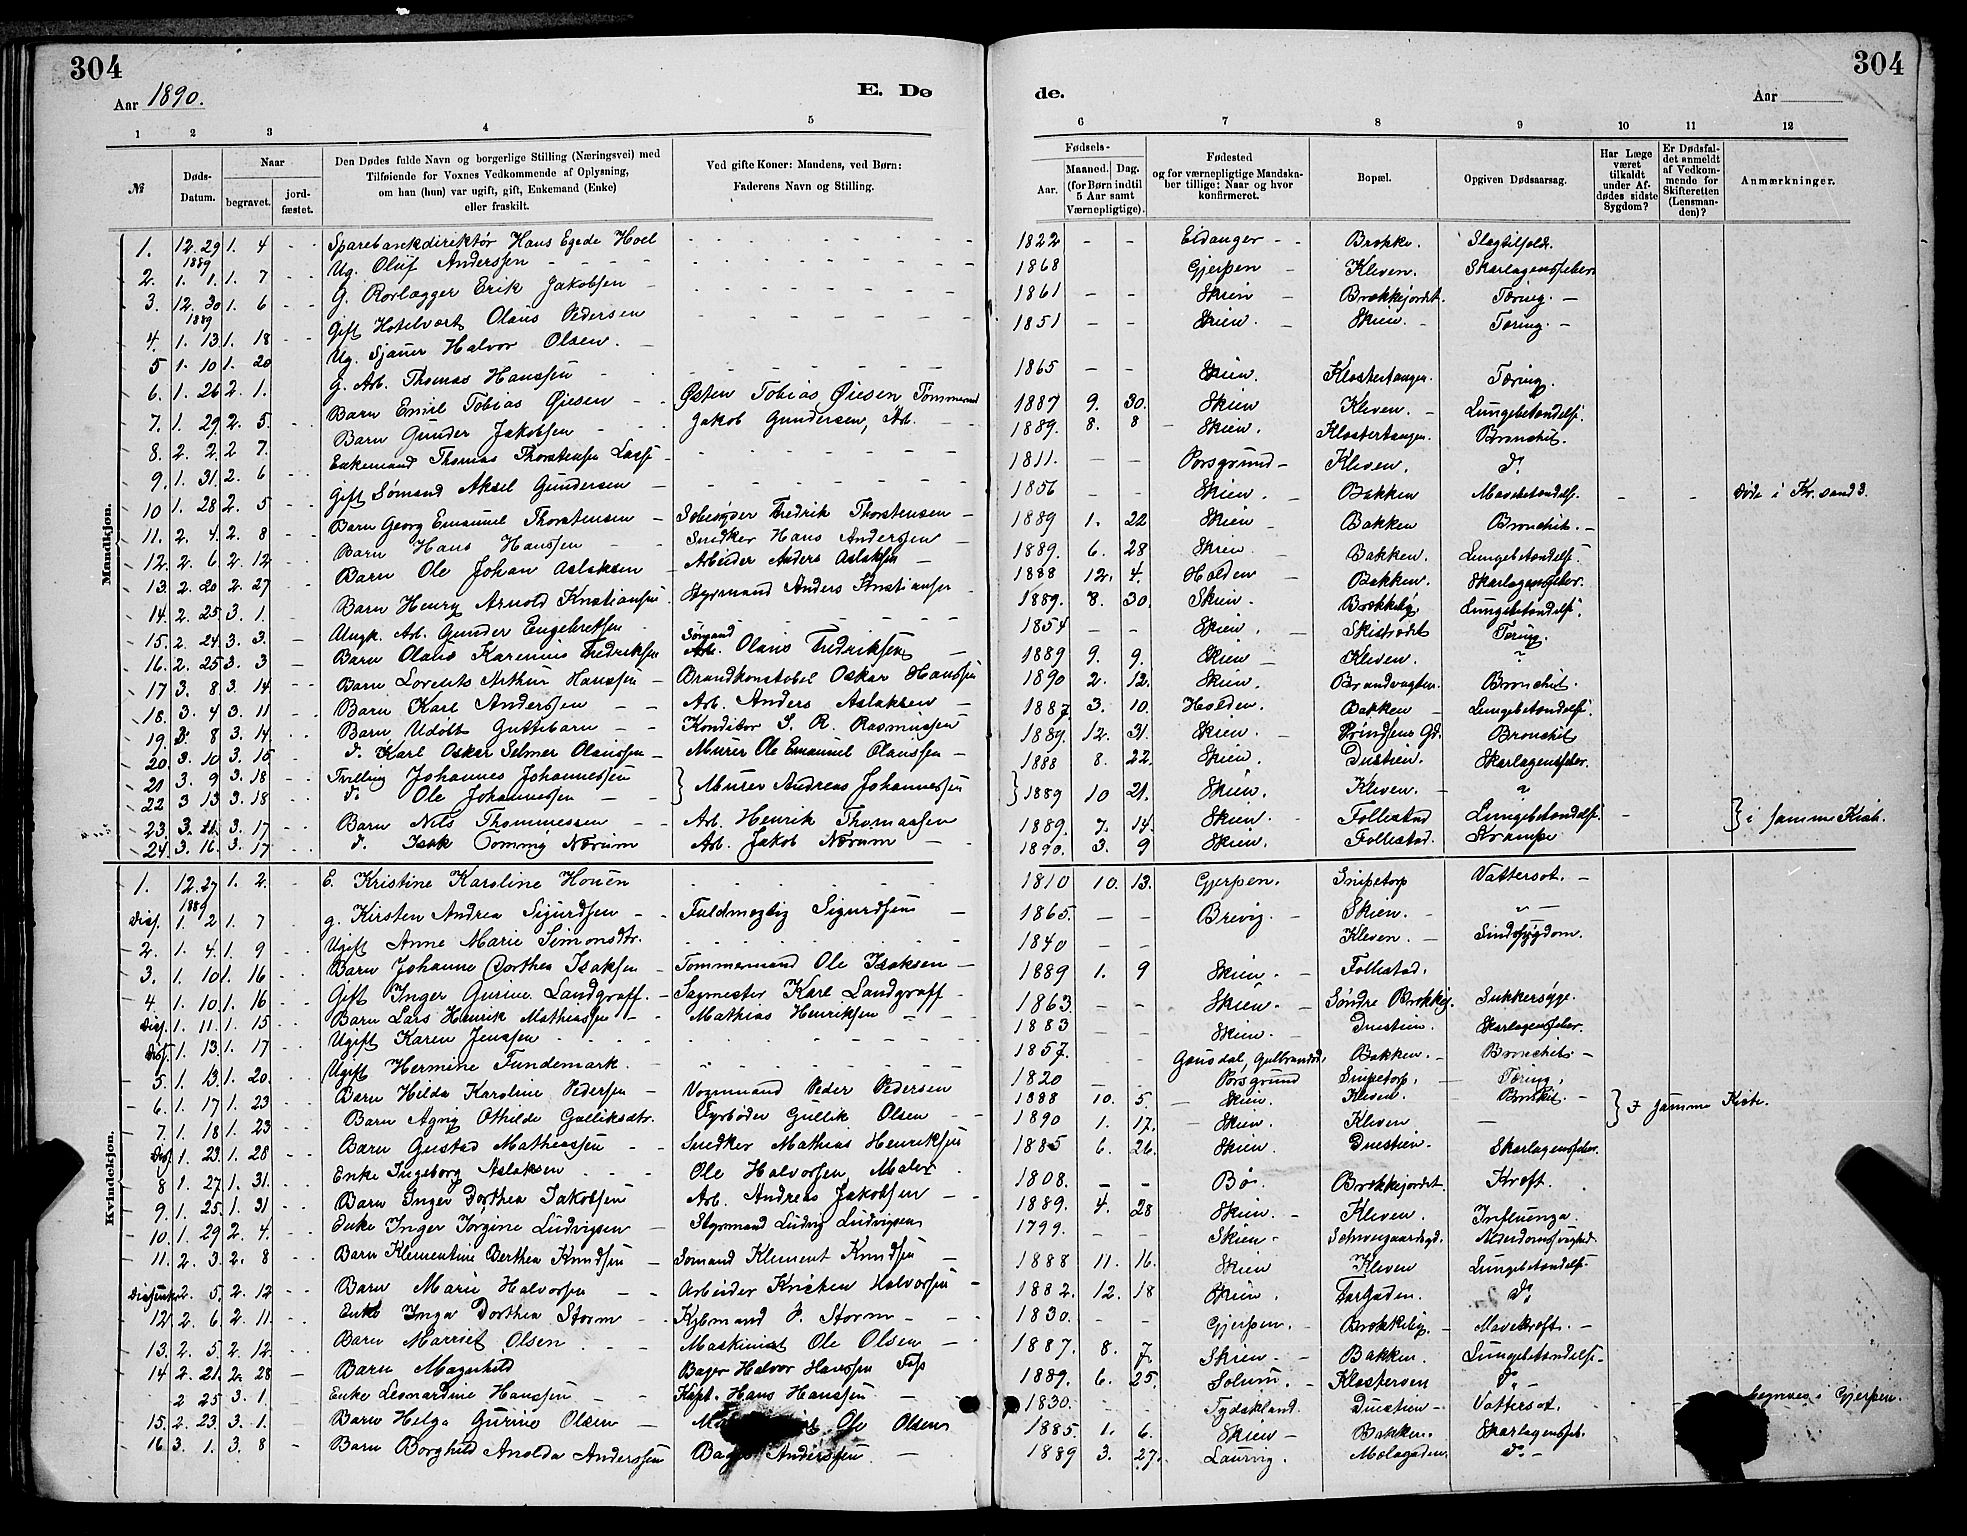 304
304
Aar 1890.
E. Dø
de.
Aar
1 2 3 4 5 6 7 8 9 10 11 12
№
Døds-Datum.
Naar begravet. jordfæstet.
Den Dødes fulde Navn og borgerlige Stilling (Næringsvei) med Tilføiende for Voxnes Vedkommende af Oplysning, om han (hun) var ugift, gift, Enkemand (Enke) eller fraskilt.
Ved gifte Koner: Mandens, ved Børn: Faderens Navn og Stilling.
Fødsels-
Aar. Maaned. Dag. (for Børn indtil 5 Aar samt Værnepligtige).
Fødested og for værnepligtige Mandskaber tillige: Naar og hvor konfirmeret.
Bopæl.
Opgiven Dødsaarsag.
Har Læge været tilkaldt under Afdødes sidste Sygdom?
Er Dødsfaldet anmeldt af Vedkommende for Skifteretten (Lensmanden)?
Anmærkninger.
Mandkjøn.
1. 12. 29 1889 1. 4 Sparebankdirektør Hans Egede Hoel 1822 Eidanger Brekke. Slagtilfelde.
2. 1. 1. 1. 7 Ug. Oluf Anderssen 1868 Gjerpen Kleven. Skarlagensfeber
3. 12. 30 1889 1. 6 G. Rorlægger Erik Jakobsen 1861 Skien Brekkejordet. Tæring.
4. 1. 13 1. 18 Gift Hotelvært Olaus Pedersen 1851 Skien. Skien. Tæring.
5 1. 10 1. 20 Ug. Sjauer Halvor Olsen.
6. 1. 26 2. 1. G. Arb. Thomas Hanssen 1865 Skien. Klostertangen. Tæring
7. 1. 29 2. 5. Barn Emil Tobias Øiesen Østen Tobias Øiesen Tømmermand 1887 9. 30. Skien Kleven. Lungebetændelse.
8. 2. 2. 2 7. Barn Gunder Jakobsen Jakob Gundersen, Arb. 1889. 8. 8 Skien. Klostertangen. Bronchit.
9. 1. 31. 2. 6 Enkemand Thomas Thorstensen 1811. Porsgrund Kleven. do
10 1. 28 2. 5 Gift Sømand Aksel Gundersen 1856 Skien. Bakken Mavebetændelse. Døde i Kr.sand S.
11. 2. 4. 2. 8 Barn Georg Emanuel Thorstensen Fredrik Thorstensen 1889 1. 22 Skien Bakken Bronchit.
12. 2. 6 2. 12 Barn Hans Hanssen Snedker Hans Anderssen 1889. 6. 28 Skien. Bakken. Lungebetændelse.
13. 2. 20 2. 27 Barn Ole Johan Aslaksen Arbeider Anders Aslaksen 1888 12. 4. Holden Bakken. Skarlagensfeber.
14. 2. 25 3. 1. Barn Henry Arnold Kristiansen Styrmand Anders Kristiansen 1889. 8. 30. Skien. Lungebetændelse.
15. 2. 24 3. 3. Arb. Gunder Engebretsen 1854 Skien. Tæring.
16. 2. 25 3. 3 Barn Olaus Karenius Fredriksen Sømand Arb. Olaus Fredriksen 1889 9. 9. Skien Kleven. ?
17 3. 8 3. 14 Barn Lorents Arthur Hanssen Brandkonstabel Oskar Hanssen 1890 2. 12. Skien. Brandvagten. Bronchit.
18. 3. 4 3. 11 Barn Karl Anderssen Arb. Anders Aslaksen 1887. 3. 10. Holden. Bakken Lungebetændelse.
19 3. 8 3. 14. Barn Udøbt Guttebarn Konditor S. R. Rasmussen 1889. 12. 31. Skien. Bronchit
20 3. 10 3. 15 do Karl Oskar Selmer Olaussen Murer Ole Emanuel Olaussen 1888 8. 22. Skien. Duestien. Skarlagensfeber.
21 3. 9 3. 18 Tvilling Johannes Johannessen } Murer Andreas Johannessen } 1889 10 21. Skien. Kleven.
22 3 13 3. 18 do Ole Johannessen
23. 3. 11. 3. 17 Barn Nils Thommessen Arb. Henrik Thomassen 1889. 7. 14. Skien. Follestad Lungebetændelse } i samme Kiste.
24 3. 16. 3. 17 do Isak Nærum Arb. Jakob Nærum 1890. 3. 9 Skien. Follestad. Krampe
Kvindekjøn.
1. 12. 27 1889 1. 2. E. Kristine Karoline Houen 1810 10. 13. Gjerpen. Snipetorp Vattersot.
Diss. 1. 2 1. 7 g. Kirsten Andrea Sigurdsen Fuldmegtig Sigurdsen 1865. Brevig. Skien.
2. 1. 4. 1. 9 Ugift Anne Marie Simonsdtr. 1840 Kleven. Sindssygdom.
3. 1. 10 1. 16 Barn Johanne Dorthea Isaksen Tømmermand Ole Isaksen 1889 1. 9 Skien. Follestad.
4. 1. 10 1. 16 Gift Inger Gurine Landgraff. Sagmester Karl Landgraff 1863. Skien. Søndre Brekkeg. Sukkersyge.
Diss. 1. 11 1. 15 Barn Lars Henrik Mathiassen Mathias Henriksen 1883 Skien. Duestien. Skarlagensfeber.
Diss. 1. 13 1. 17 Ugift Karen Jenssen 1857. Gausdal, Gulbrandsd. Bakken. Bronchit
5. 1. 13 1. 20. Ugift Hermine Fundemark. 1820 Porsgrund Snipetorp. Tæring.
6. 1. 17 1. 23 Barn Hilda Karoline Pedersen Vognmand Peder Pedersen 1888 10. 5. Skien. Kleven. Bronkit. } I samme Kiste.
7. 1. 18 1. 23 Barn Agnis Othilde Gulliksdtr. Fyrbøder Gullik Olsen 1890 1. 17. Skien. Kleven
Diss 1. 23. 1. 28 Barn Gustav Mathiassen Snedker Mathias Henriksen 1885 6. 26. Skien Duestien. Skarlagensfeber.
8 1. 27 1. 31. Enke Ingeborg Aslaksen Ole Halvorsen Maler 1808. Bø. Brekkejordet. Kræft.
9. 1. 25. 1. 31 Barn Inger Dorthea Jakobsen Arb. Andreas Jakobsen 1889. 4. 28 Skien. Kleven. Influenza
10. 1. 29 2. 4. Enke Inger Jørgine Ludvigsen Styrmand Ludvig Ludvigsen 1799. Skien. Schweigaardsgd. Alderdomssvaghed.
11. 2. 3. 2. 8 Barn Klementine Berthea Knudsen Sømand Klement Knudsen 1888 11. 16. Skien Kleven Lungebetændelse
Dissenter 2. 5. 2. 12 Barn Marie Halvorsen Arbeider Kristen Halvorsen 1882. 12. 18 Skien. do
12 2. 6 2. 11. Enke Inga Dorthea Storm Kjøbmand P. Storm 1830. Gjerpen. Mavekræft.
13. 2. 5 2. 12 Barn Marriet Olsen Maskinist Ole Olsen 1887. 8. 7. Skien Bakken. Lungebetændelse
14 2. 21 2. 28 Barn Magnhild Bager Halvor Hanssen Foss 1889. 6. 25. Solum. Klosterøen do
2 25 3. 1. Enke Leonardine Hanssen Kapt. Hans Hanssen 1830. Tydskland. Duestien Vattersot. Gjerpen.
15. 2. 23 3. 1. Barn Helga Gurine Olsen Ole Olsen 1885. 1. 6. Skien Bakken. Skarlagensfeb.
16 3. 1. 3. 8 Barn Borghild Arolda Anderssen Bager Anderssen 1889 3. 27. Laurvig. Mælagaden. do